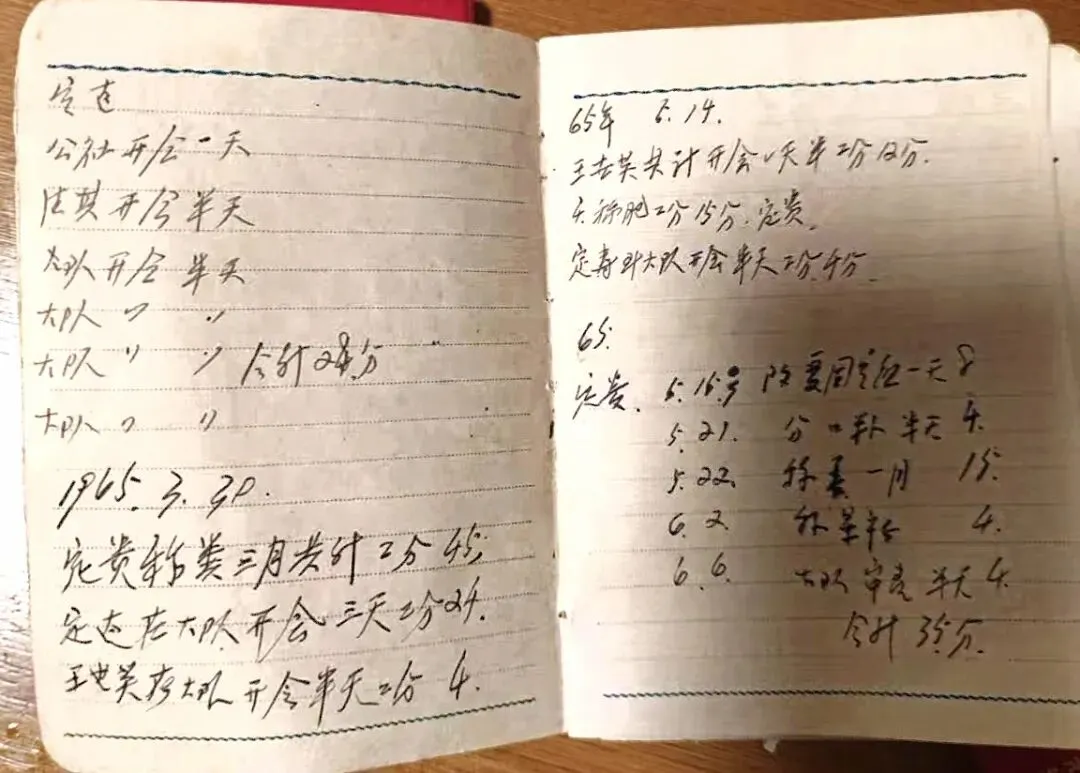 定远
公社开会一天
开会半天
大队开会半天
大队 〃 〃
大队 〃 〃 合计28分
大队 〃 〃
1965. 3. 30.
定贵称粪三月共计工分45.
定远在大队开会三天工分24.
王世英在大队开会半天工分 4.
65年 5. 14.
王世英共计开会1天半工分12分.
工分15分. 定贵.
定寿到大队开会半天工分4分.
65.
定贵. 5. 16号 一天 8
5. 21. 分口 半天 4.
5. 22. 称粪一月 15.
6. 2. 4.
6. 6. 大队 半天 4.
合计 35分.